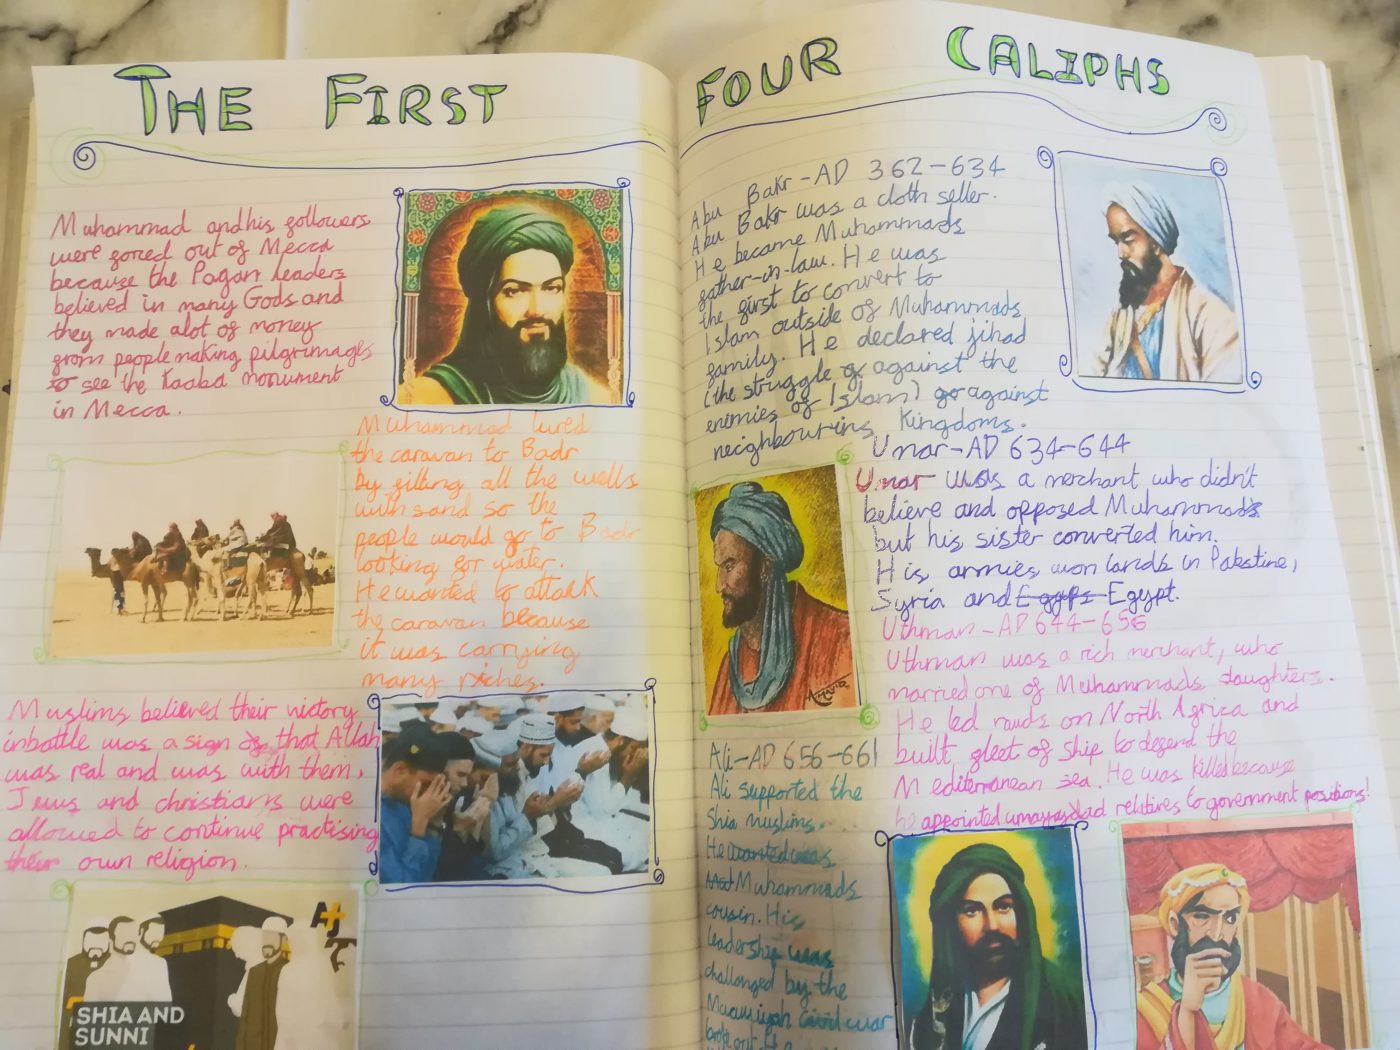 THE FIRST FOUR CALIPHS
Muhammad and his followers
were forced out of Mecca
because the Pagan leaders
believed in many Gods and
they made alot of money
from people making pilgrimages
to see the Kaaba monument
in Mecca.
Muhammad lured
the caravan to Badr
by filling all the wells
with sand so the
people would go to Badr
looking for water.
He wanted to attack
the caravan because
it was carrying
many riches.
Muslims believed their victory
in battle was a sign that Allah
was real and was with them.
Jews and christians were
allowed to continue practising
their own religion.
SHIA AND
SUNNI
Abu Bakr - AD 362-634
Abu Bakr was a cloth seller.
He became Muhammads
father-in-law. He was
the first to convert to
Islam outside of Muhammads
family. He declared jihad
(the struggle against the
enemies of Islam) against
neighbouring Kingdoms.
Umar-AD 634-644
Umar was a merchant who didn't
believe and opposed Muhammads
but his sister converted him.
His armies won lands in Palestine,
Syria and Egypt.
Uthman-AD 644-656
Uthman was a rich merchant, who
married one of Muhammads daughters.
He led raids on North Africa and
built fleet of ship to defend the
Mediterranean sea. He was killed because
he appointed relitires to government positions!
Ali-AD 656-661
Ali supported the
Shia muslims.
He was
Muhammads
cousin. His
leadership was
challanged by the
civil war
broke out